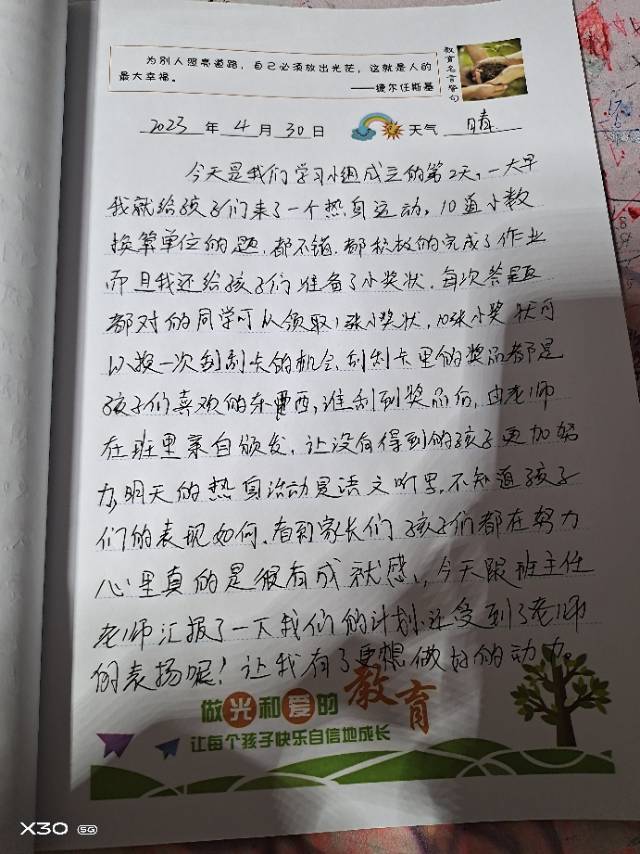 为别人照亮道路，自己必须放出光芒，这就是人的
最大幸福。
——捷尔任斯基
教育名言警句
2023 年 4 月 30 日 天气 晴
今天是我们学习小组成立的第2天，一大早
我就给孩子们来了一个热身运动，10道小数
换算单位的题，都不错，都积极的完成了作业
而且我还给孩子们准备了小奖状，每次答题
都对的同学可以领取1张小奖状，10张小奖状可
以换一次刮刮卡的机会，刮刮卡里的奖品都是
孩子们喜欢的东西，谁刮到奖品后，由老师
在班里亲自颁发，让没有得到的孩子更加努
力，明天的热身活动是语文听写，不知道孩子
们的表现如何，看到家长们孩子们都在努力
心里真的是很有成就感，今天跟班主任
老师汇报了一下我们的计划，还受到了老师
的表扬呢！让我有了更想做好的动力。
做光和爱的教育
让每个孩子快乐自信地成长
X30 5G